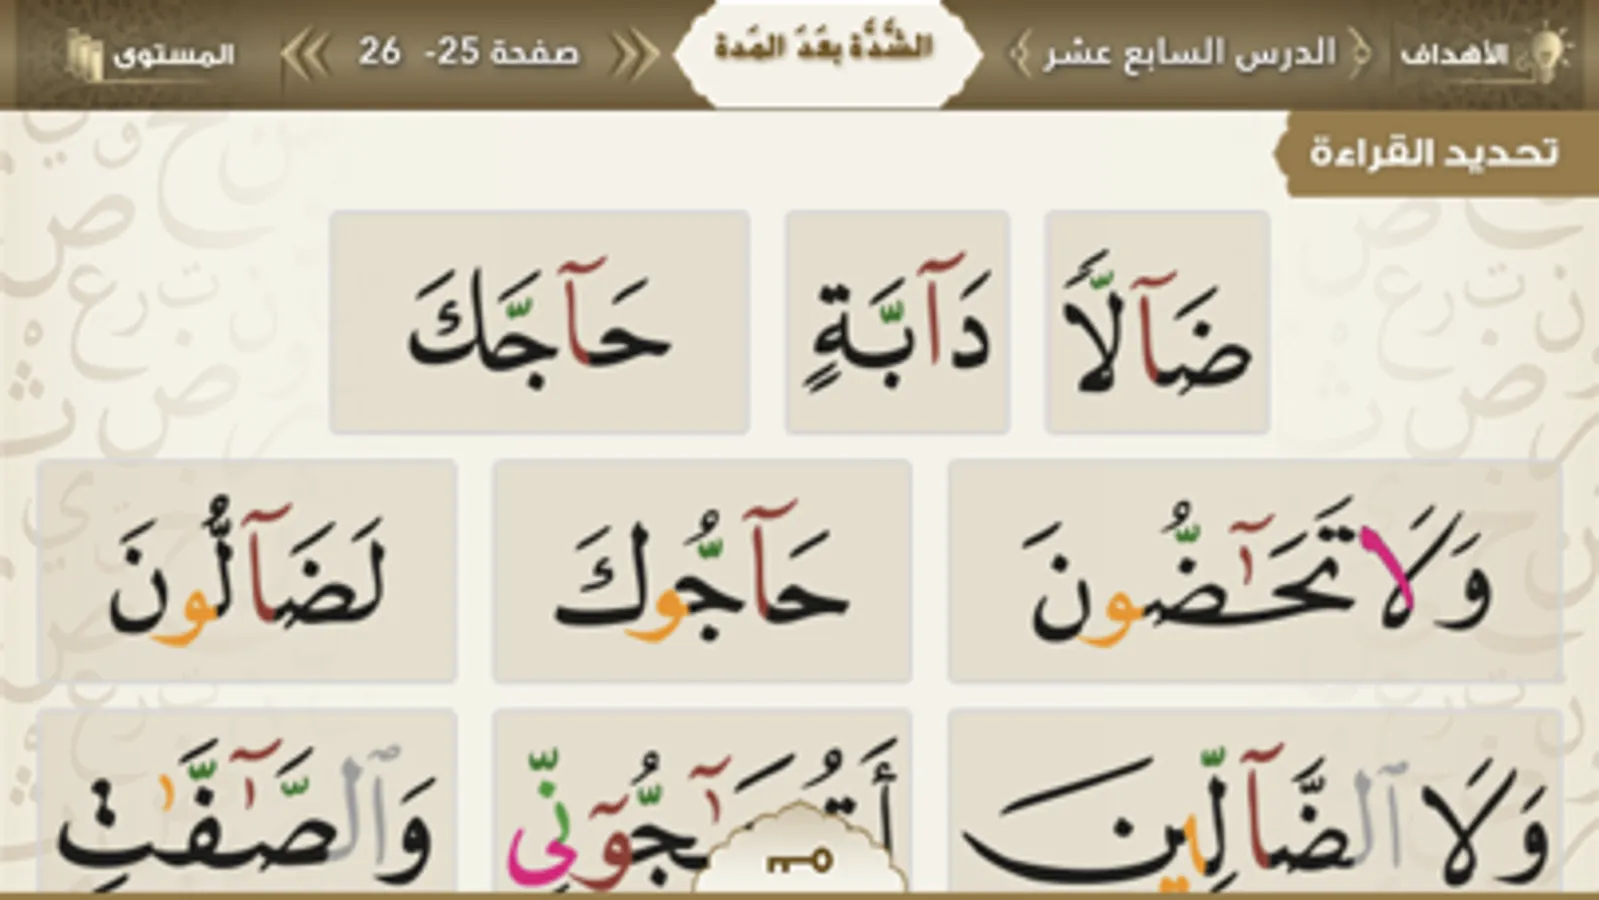 الأهداف
الدرس السابع عشر
الشَّدَّة بعَدَ المَدة
صفحة 25- 26
المستوى
تحديد القراءة
ضَآلًّا دَآبَّةٍ حَآجَّكَ
وَلَا تَحَٰٓضُّونَ حَآجُّوكَ لَضَآلُّونَ
وَلَا ٱلضَّآلِّينَ أَتُحَٰٓجُّوٓنِّي وَٱلصَّٰٓفَّٰتِ